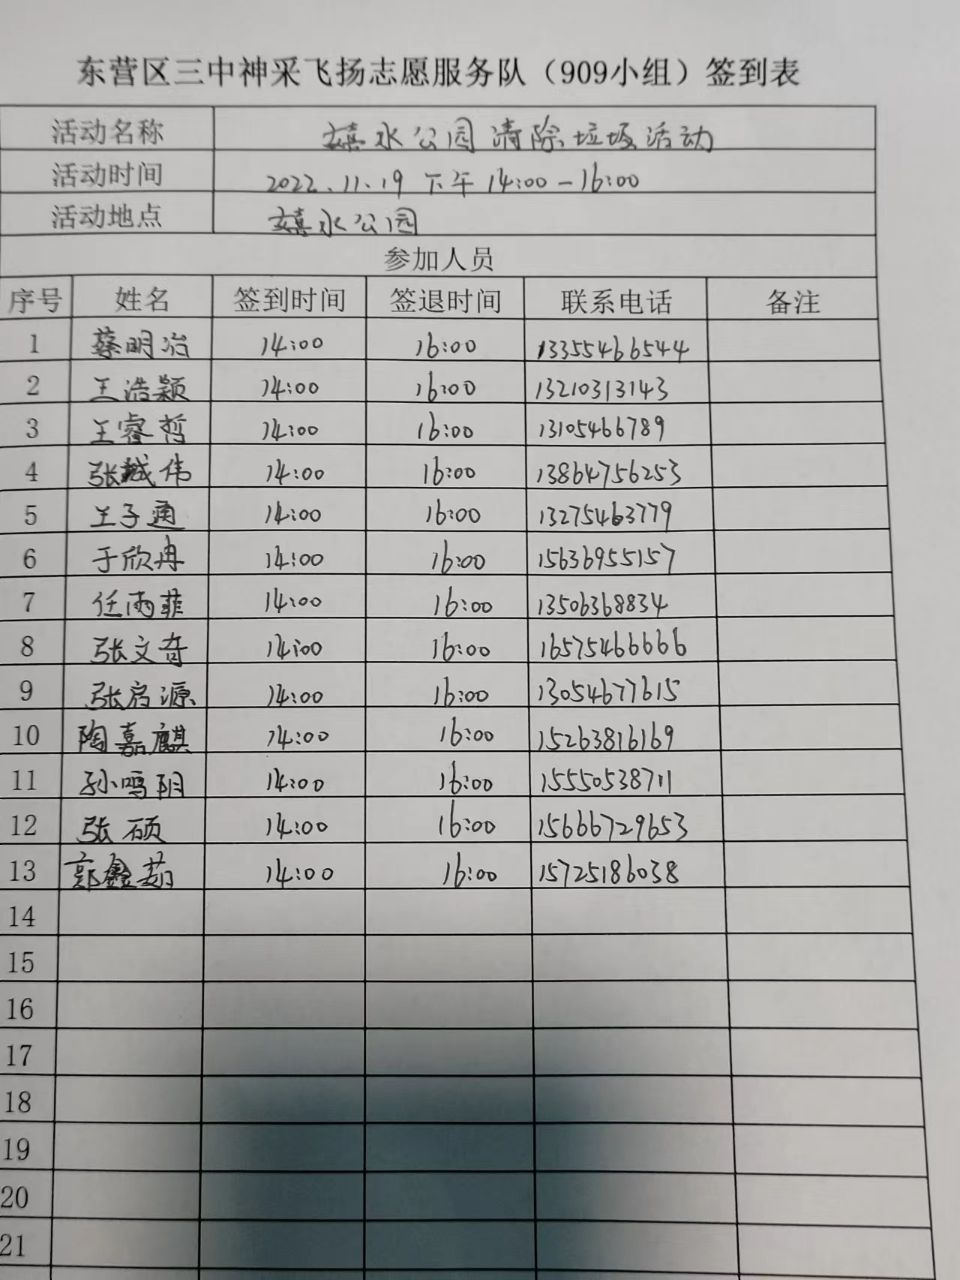 东营区三中神采飞扬志愿服务队（909小组）签到表
活动名称 嬉水公园清除垃圾活动
活动时间 2022.11.19 下午 14:00-16:00
活动地点 嬉水公园
参加人员
序号 姓名 签到时间 签退时间 联系电话 备注
1 蔡明冶 14:00 16:00 13355466544
2 王浩颖 14:00 16:00 13210313143
3 王睿哲 14:00 16:00 13105466789
4 张越伟 14:00 16:00 13864756253
5 王子通 14:00 16:00 13275463779
6 于欣冉 14:00 16:00 15636955157
7 任雨菲 14:00 16:00 13506368834
8 张文奇 14:00 16:00 16575466666
9 张启源 14:00 16:00 13054677615
10 陶嘉麒 14:00 16:00 15263816169
11 孙鸣阳 14:00 16:00 15550538711
12 张硕 14:00 16:00 15666729653
13 郭鑫茹 14:00 16:00 15725186038
14
15
16
17
18
19
20
21